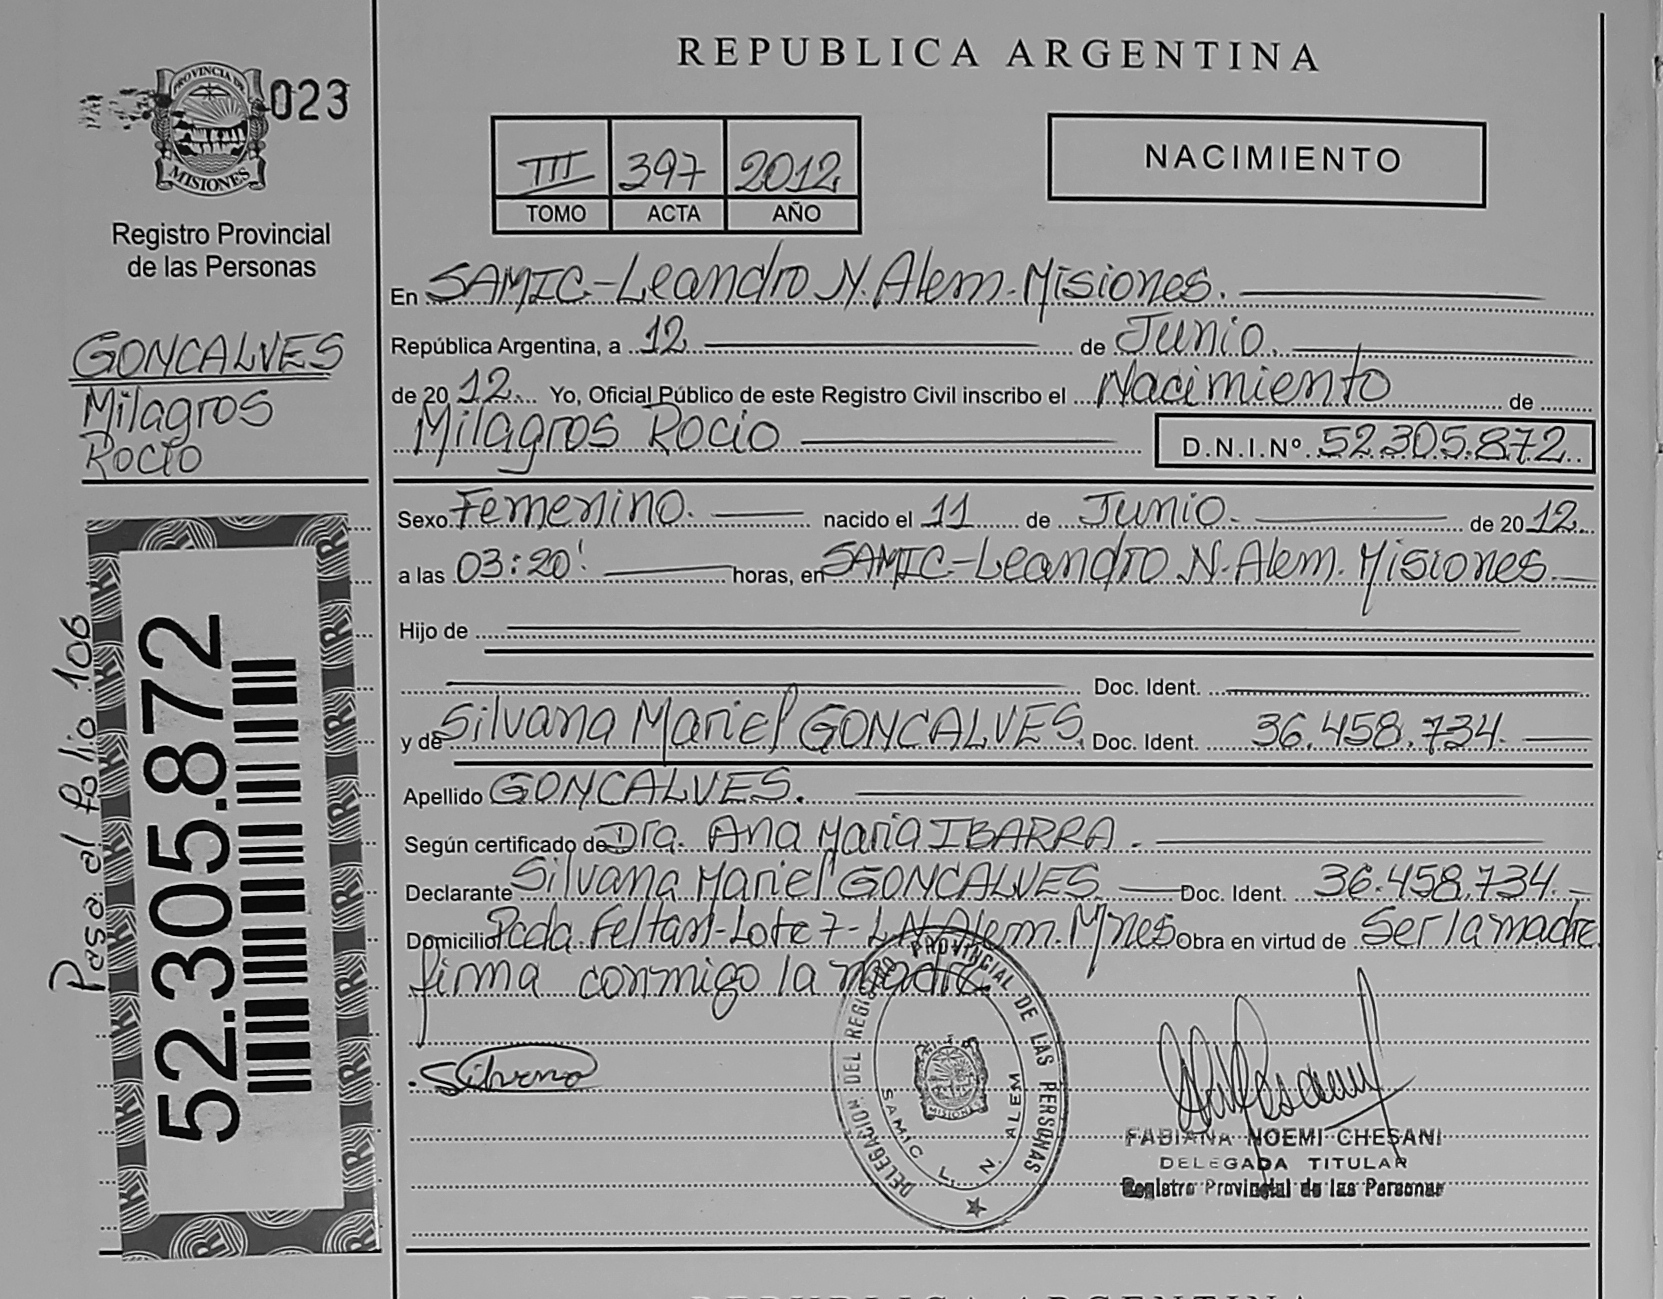 REPUBLICA ARGENTINA
PROVINCIA DE
MISIONES
023
Registro Provincial
de las Personas
GONCALVES
Milagros
Rocío
Pasa al folio 106
52.305.872
III 397 2012
TOMO ACTA AÑO
NACIMIENTO
En SAMIC-Leandro N. Alem-Misiones.
República Argentina, a 12 de Junio.
de 2012. Yo, Oficial Público de este Registro Civil inscribo el Nacimiento de
Milagros Rocío D.N.I.Nº 52.305.872.
Sexo Femenino. nacido el 11 de Junio. de 2012.
a las 03:20' horas, en SAMIC-Leandro N. Alem. Misiones.
Hijo de
Doc. Ident.
y de Silvana Mariel GONCALVES. Doc. Ident. 36.458.734.
Apellido GONCALVES.
Según certificado de Dra. Ana Maria IBARRA.
Declarante Silvana Mariel GONCALVES. Doc. Ident. 36.458.734.
Domicilio Pcda. Feltan-Lote 7-L.N.Alem. Mnes Obra en virtud de Ser la madre
firma conmigo la madre
Silvana
DELEGACION DEL REGISTRO PROVINCIAL DE LAS PERSONAS
SAMIC L. N. ALEM
MISIONES
FABIANA NOEMI CHESANI
DELEGADA TITULAR
Registro Provincial de las Personas